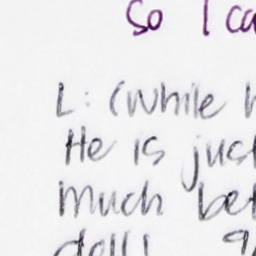 So I ca
L: (while h
He is just
much bet
doll!